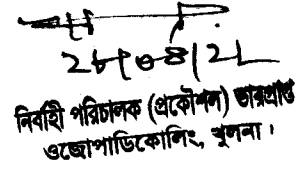 ২৮/০৪/২২
নির্বাহী পরিচালক (প্রকৌশল) ভারপ্রাপ্ত
ওজোপাডিকোলিং, খুলনা।